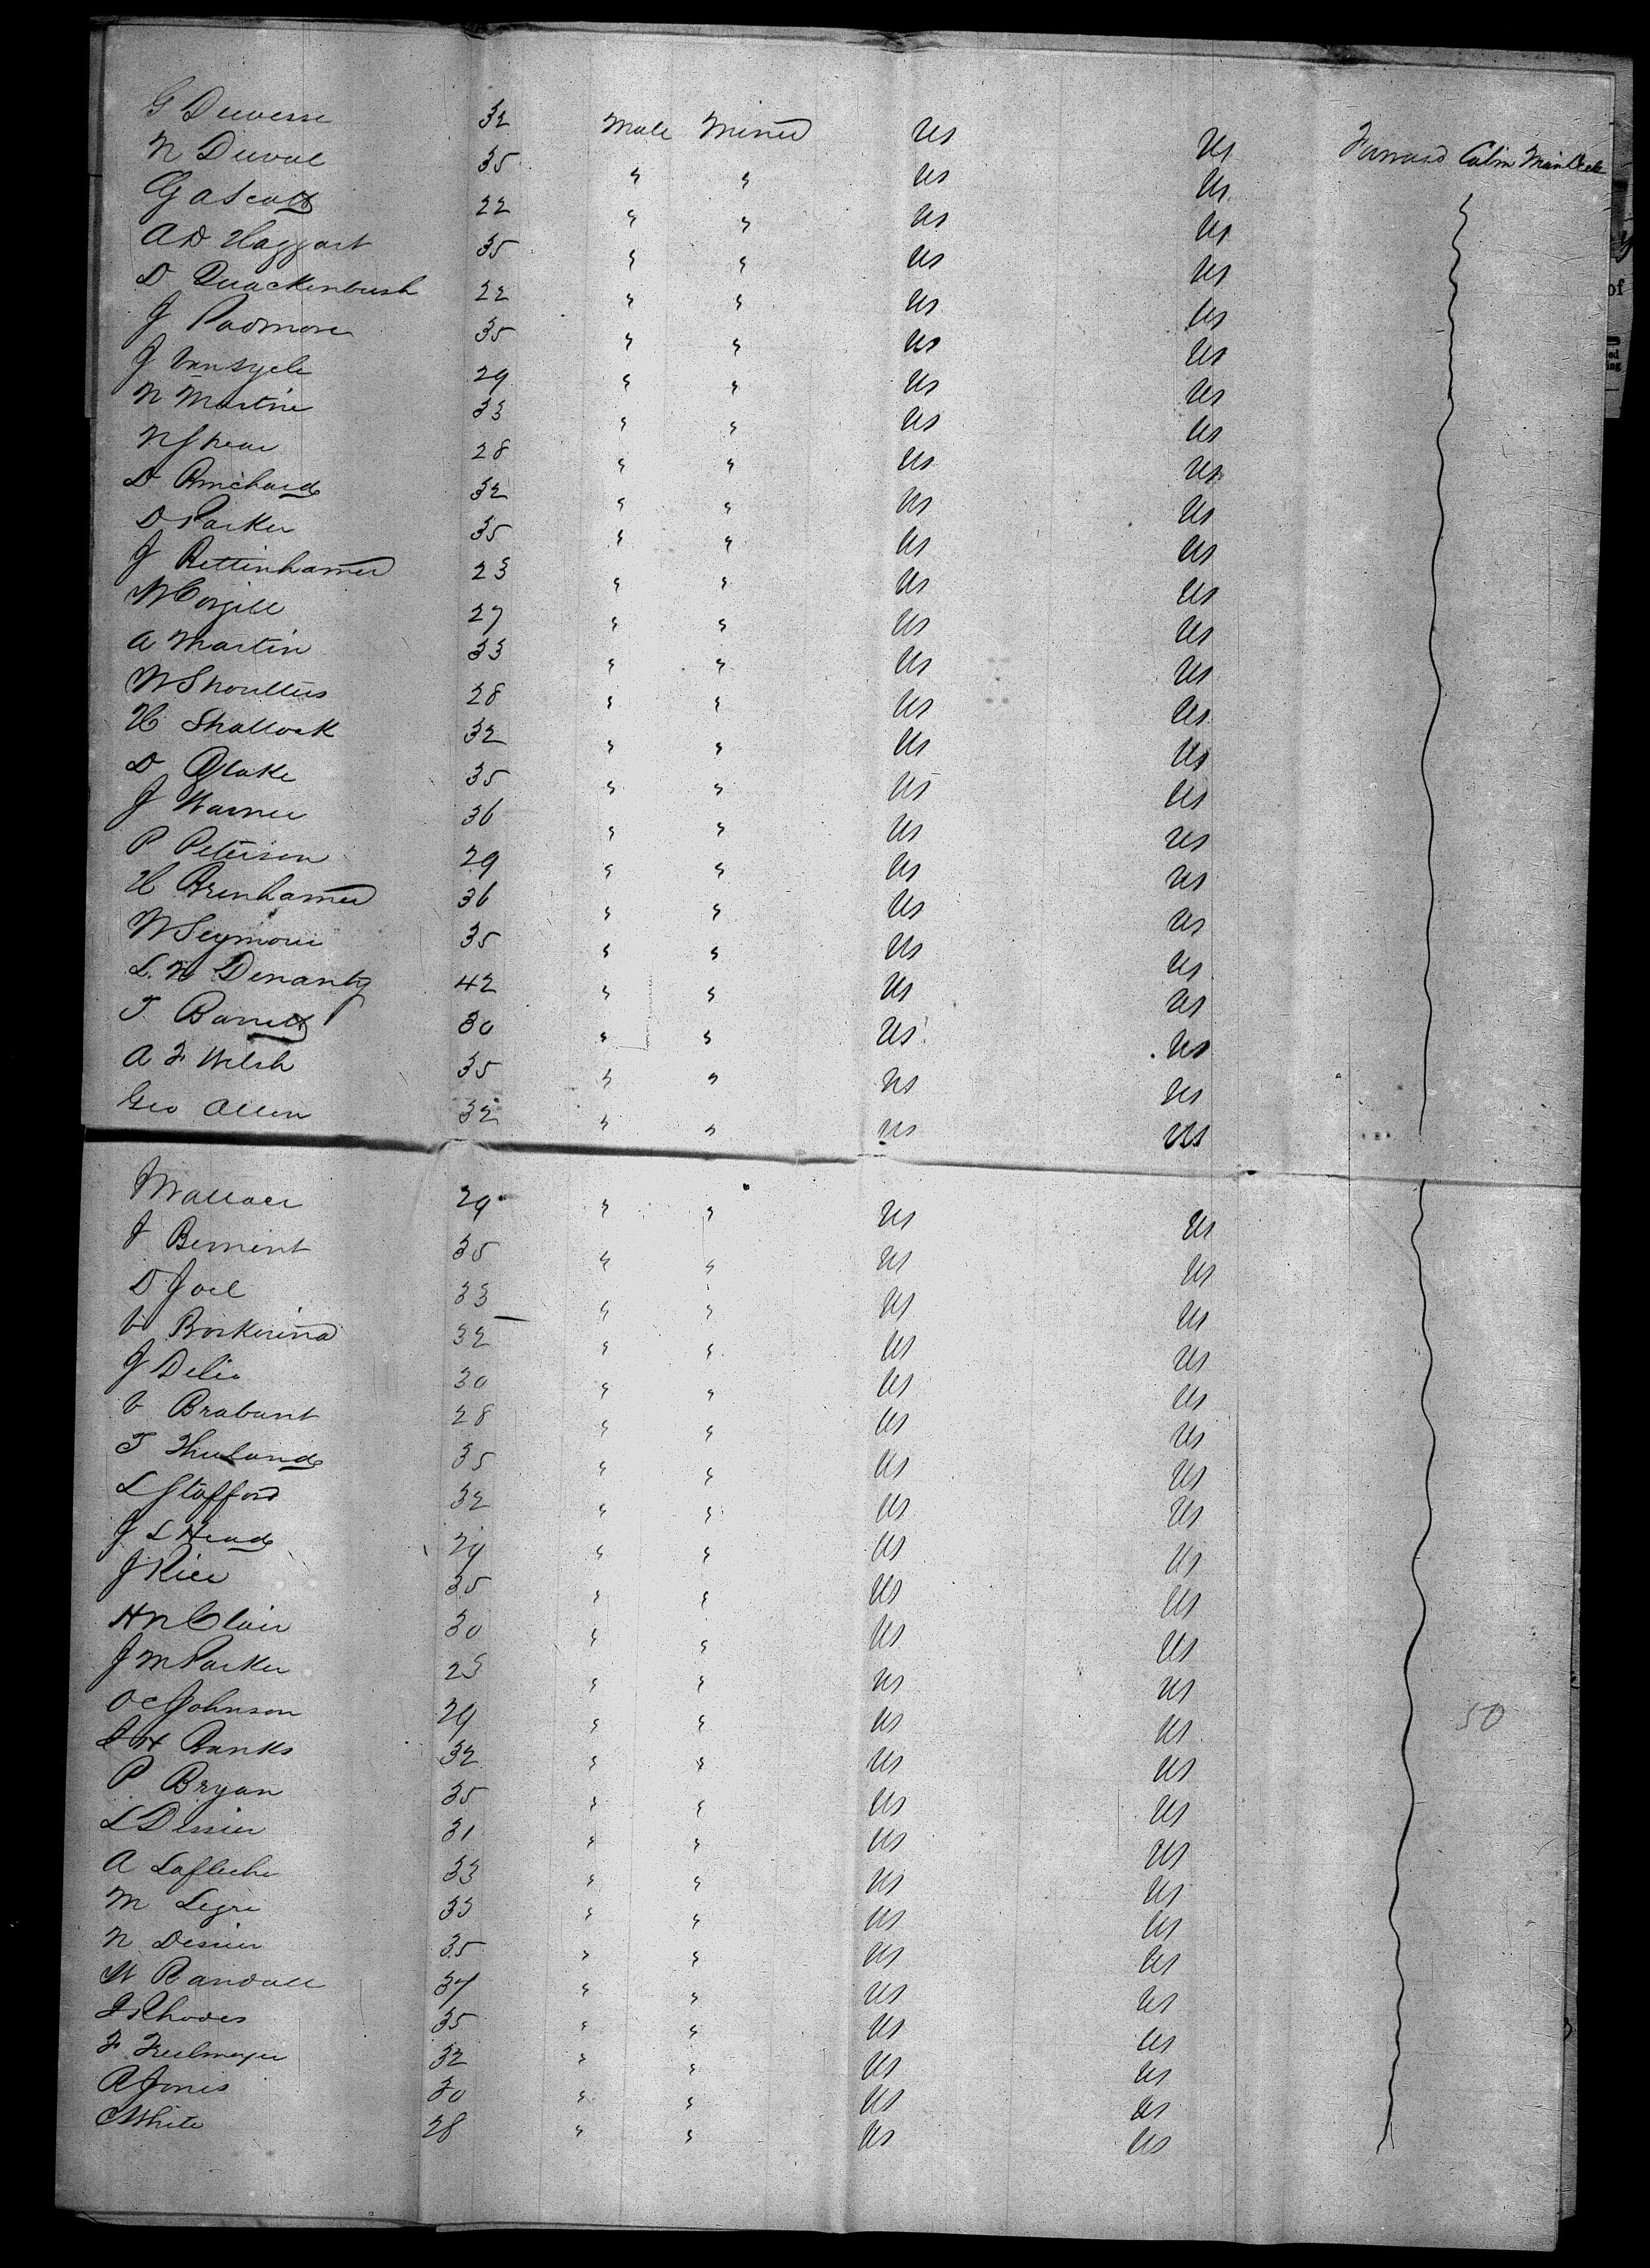 G Duvesse 32 Male Miner US US Forward Cabin Main Deck
N Duval 35 " " US US
G A Scott 22 " " US US
A D Haggart 35 " " US US
D Quackenbush 22 " " US US
J Padmore 35 " " US US
J Vansycle 29 " " US US
N Martin 33 " " US US
28 " " US US
D Prichard 32 " " US US
D Parker 35 " " US US
J Rettinhamer 23 " " US US
W Corgill 27 " " US US
A Martin 33 " " US US
W Shoultus 28 " " US US
H Shattock 32 " " US US
D Blake 35 " " US US
J Warner 36 " " US US
P Peterson 29 " " US US
H Brenhamer 36 " " US US
W Seymour 35 " " US US
L. W 42 " " US US
T Barrett 30 " " US US
A F Welsh 35 " " US US
Geo Allen 32 " " US US
Wallace 29 " " US US
J Bement 35 " " US US
D Joel 33 " " US US
V 32 " " US US
J Delio 30 " " US US
V Brabant 28 " " US US
T 35 " " US US
L Stafford 32 " " US US
J L Head 29 " " US US
J Rice 35 " " US US
H N Clair 30 " " US US
J M Parker 23 " " US US
O C Johnson 29 " " US US
50
J H Banks 32 " " US US
P Bryan 35 " " US US
L Dessier 31 " " US US
A Lafleche 33 " " US US
M Legre 33 " " US US
N Dessier 35 " " US US
W Randall 37 " " US US
J Rhodes 35 " " US US
F 32 " " US US
R Jones 30 " " US US
C White 28 " " US US